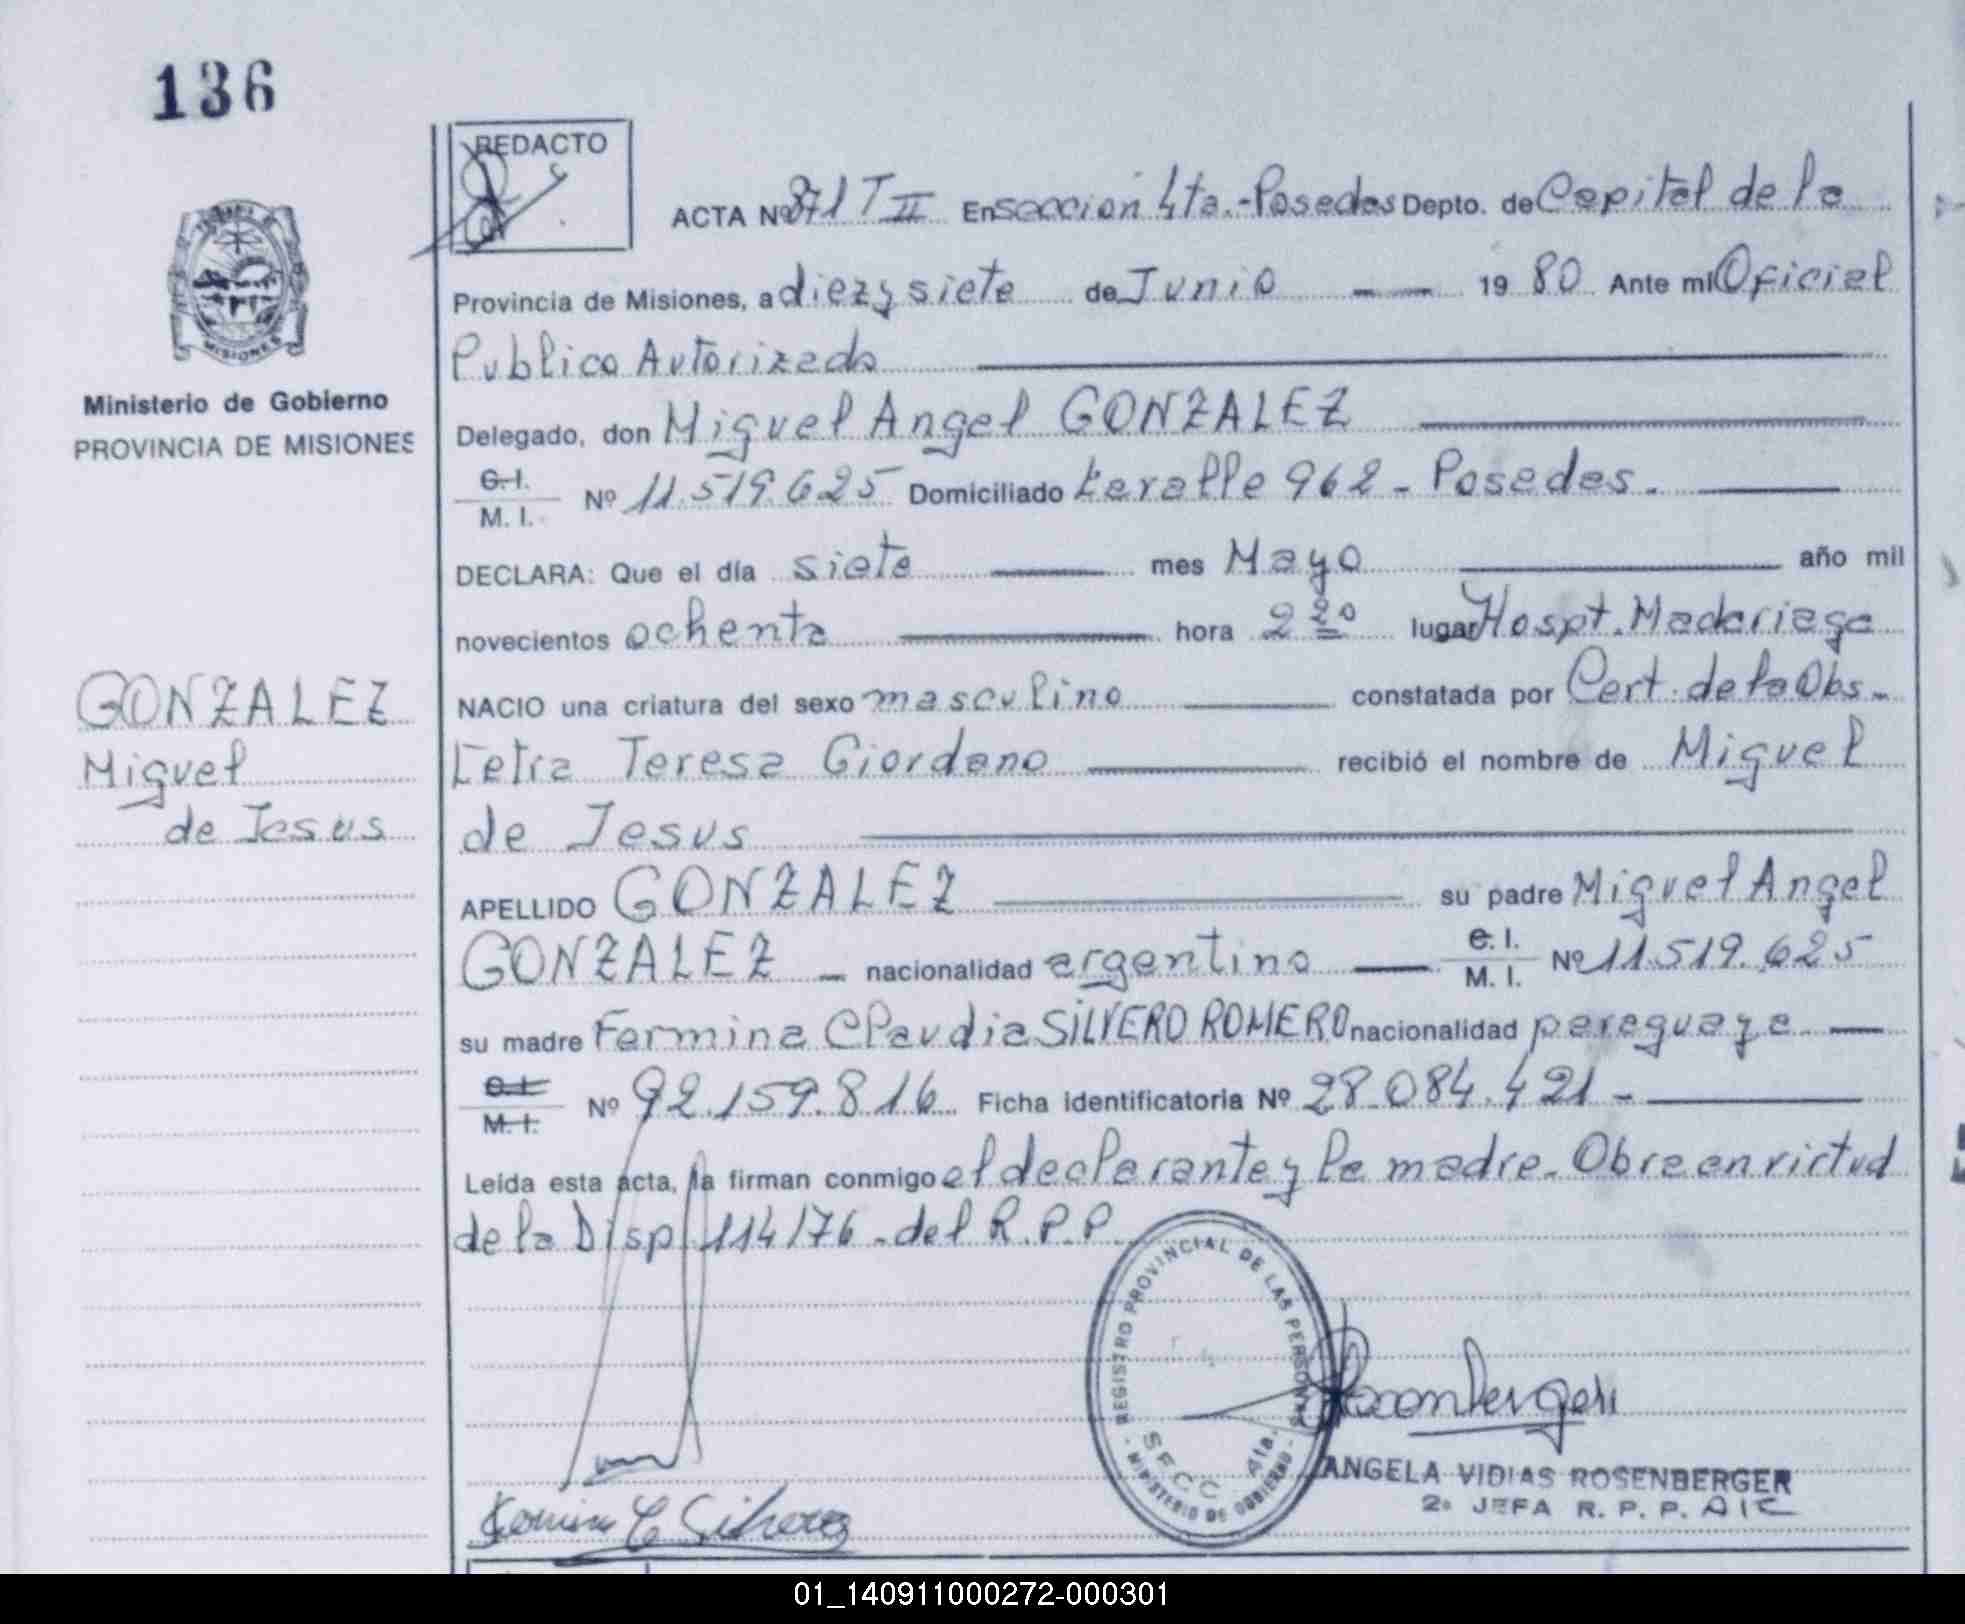 136
REDACTO
ACTA Nº 871 T II En seccion 4ta.-Posadas Depto. de Capital de la
Provincia de Misiones, a diez y siete de Junio 19 80 Ante mi Oficial
MISIONES
Publico Autorizado
Ministerio de Gobierno
PROVINCIA DE MISIONES
Delegado, don Miguel Angel GONZALEZ
C. I.
M. I. Nº 11.519.625 Domiciliado 962 - Posadas.
DECLARA: Que el día siete mes Mayo año mil
novecientos ochenta hora 2 20 lugar Hospt. Madariaga
GONZALEZ
Miguel
de Jesus
NACIO una criatura del sexo masculino constatada por Cert. de la Obs-
tetra Teresa Giordano recibió el nombre de Miguel
de Jesus
APELLIDO GONZALEZ su padre Miguel Angel
GONZALEZ - nacionalidad argentino C. I.
M. I. Nº 11.519.625
su madre Fermina Claudia SILVERO ROMERO nacionalidad paraguaya
C. I.
M. I. Nº 92.159.816 Ficha identificatoria Nº 28.084.421 -
Leída esta acta, la firman conmigo el declarante y la madre. Obra en virtud
de la Disp 114/76 - del R.P.P.
REGISTRO PROVINCIAL DE LAS PERSONAS
SECC. 4ta.
- MINISTERIO DE GOBIERNO -
Rosenberger
ANGELA VIDIAS ROSENBERGER
2ª JEFA R. P. P. A/C
01_140911000272-000301